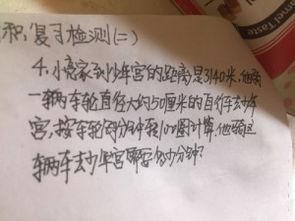 积.复习检测(二)
4.小亮家到少年宫的距离是3140米,他骑
一辆车轮直径大约50厘米的自行车去少年
宫,按车轮每分钟转100圈计算,他骑这
辆车去少年宫需要多少分钟?